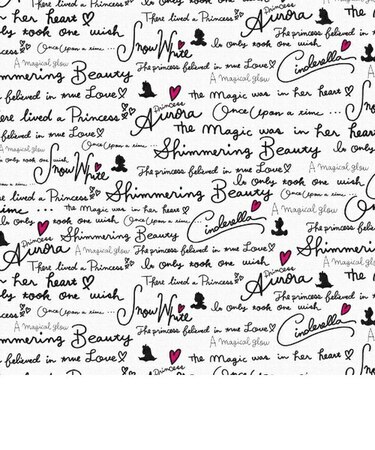 There lived a Princess Snow White Princess Aurora The princess
her heart It only took one wish
ly took one wish Once upon a time... The princess believed in true Love Cinderella
A magical glow A magical glow
Shimmering Beauty Princess Aurora the Magic was in her heart
s believed in true Love Once Upon a time ...
re lived a Princess the Magic was in her heart
The princess believed in true Love Shimmering Beauty
A magical glow Snow White The princess believed in true Love A magical glow
only took one wish There lived a Princess It only took one wish
Shimmering Beauty
time ... the Magic was in her heart Once Upon a time ... A magical glow
Princess Aurora Shimmering Beauty Cinderella There lived a Princess
A magical glow The princess believed in true Love Shimmering
There lived a Princess It only took one wish Princess Aurora the
her heart Snow White A magical glow
only took one wish The princess believed in
Once Upon a time ... There lived a Princess It only took one wish
A magical glow The princess believed in true Love Cinderella
mmering Beauty A magical glow
s believed in true Love Princess the Magic was in her heart
re lived a Princess Aurora Once Upon a time ...